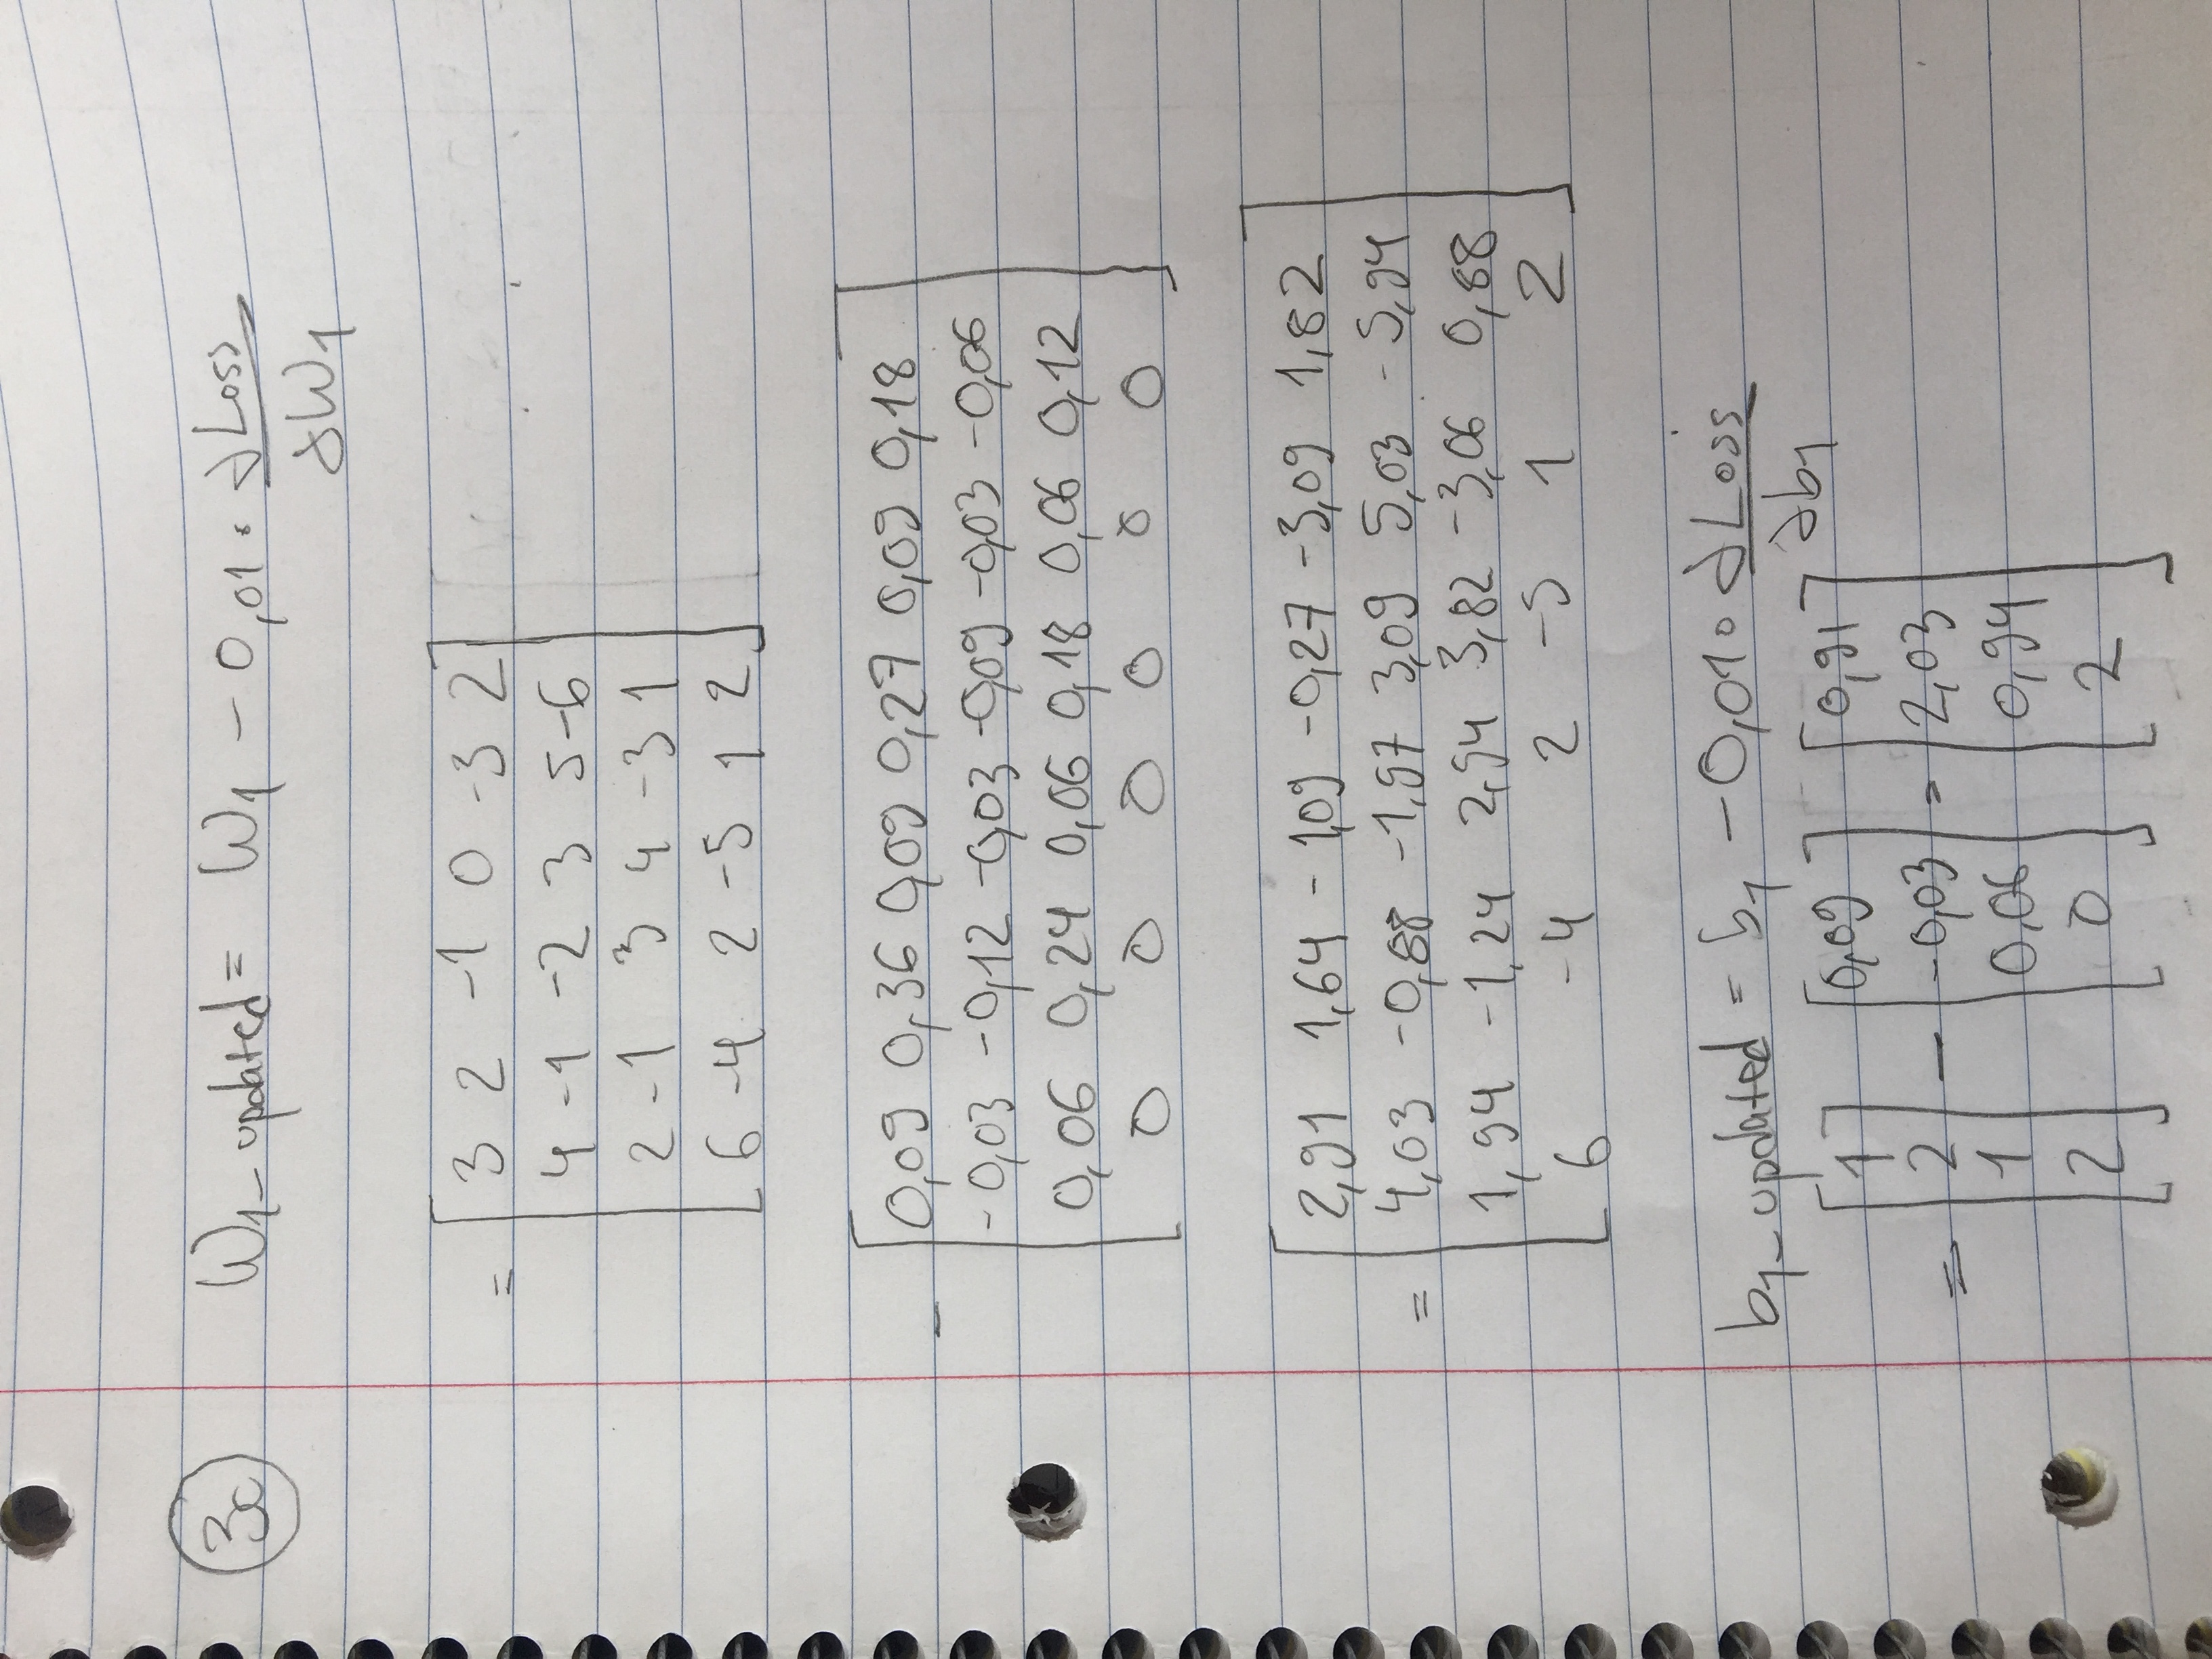 3c W1_updated = W1 - 0,01 · ∂Loss
∂W1
= [3 2 -1 0 -3 2
4 -1 -2 3 5 -6
2 -1 3 4 -3 1
6 -4 2 -5 1 2]
- [0,09 0,36 0,09 0,27 0,09 0,18
-0,03 -0,12 -0,03 -0,09 -0,03 -0,06
0,06 0,24 0,06 0,18 0,06 0,12
0 0 0 0 0 0]
= [2,91 1,64 -1,09 -0,27 -3,09 1,82
4,03 -0,88 -1,97 3,09 5,03 -5,94
1,94 -1,24 2,94 3,82 -3,06 0,88
6 -4 2 -5 1 2]
b1_updated = b1 - 0,01 · ∂Loss
∂b1
= [1 2 1 2] - [0,09 -0,03 0,06 0] = [0,91 2,03 0,94 2]